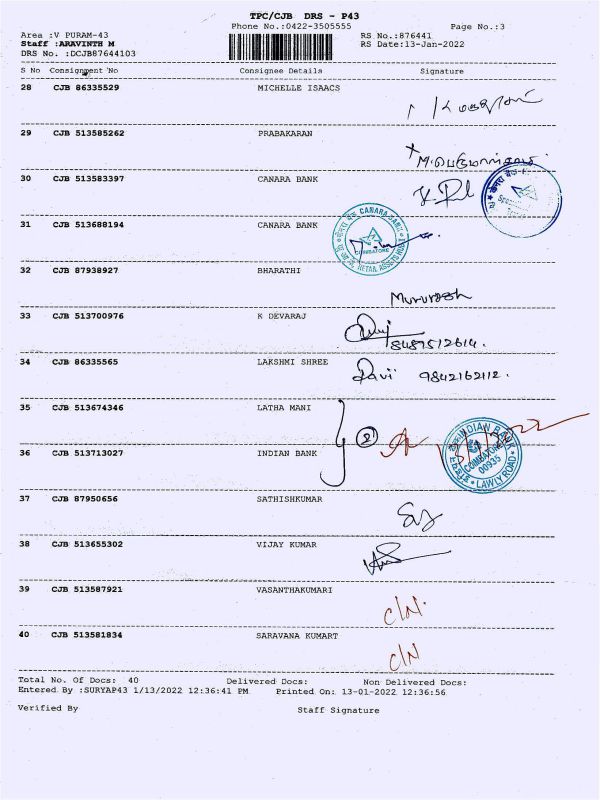 TPC/CJB DRS - P43
Phone No.:0422-3505555
Page No.:3
Area :V PURAM-43
RS No.:876441
Staff :ARAVINTH M
RS Date:13-Jan-2022
DRS No. :DCJB87644103
S No Consignment No Consignee Details Signature
28 CJB 86335529 MICHELLE ISAACS
29 CJB 513585262 PRABAKARAN
30 CJB 513583397 CANARA BANK
31 CJB 513688194 CANARA BANK
CANARA BANK
COIMBATORE
RETAIL ASSETS HUB
32 CJB 87938927 BHARATHI
Murugesh
33 CJB 513700976 K DEVARAJ
8489512614.
34 CJB 86335565 LAKSHMI SHREE
Ravi 9842162112.
35 CJB 513674346 LATHA MANI
2
36 CJB 513713027 INDIAN BANK
INDIAN BANK
COIMBATORE
00935
LAWLY ROAD
37 CJB 87950656 SATHISHKUMAR
38 CJB 513655302 VIJAY KUMAR
39 CJB 513587921 VASANTHAKUMARI
C/N.
40 CJB 513581834 SARAVANA KUMART
C/N
Total No. Of Docs: 40 Delivered Docs: Non Delivered Docs:
Entered By :SURYAP43 1/13/2022 12:36:41 PM Printed On: 13-01-2022 12:36:56
Verified By Staff Signature